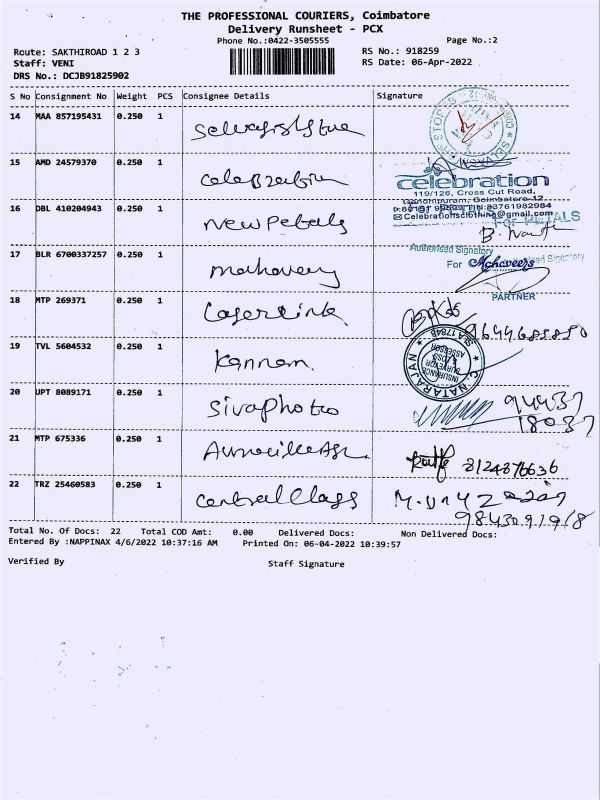 THE PROFESSIONAL COURIERS, Coimbatore
Delivery Runsheet - PCX
Phone No.:0422-3505555
Page No.:2
Route: SAKTHIROAD 1 2 3
RS No.: 918259
Staff: VENI
RS Date: 06-Apr-2022
DRS No.: DCJB91825902
S No Consignment No Weight PCS Consignee Details Signature
14 MAA 857195431 0.250 1
15 AMD 24579370 0.250 1
celebration
119/126, Cross Cut Road,
Gandhipuram, Coimbatore-12.
16 DBL 410204943 0.250 1 New Petals
Celebrationsclothing@gmail.com
For PETALS
Authorised Signatory
17 BLR 6700337257 0.250 1 mahaveery
For Mahaveers
PARTNER
18 MTP 269371 0.250 1 Laserlink
9644685880
19 TVL 5604532 0.250 1 Kannam
C. NATARAJAN
INSURANCE
SURVEYOR
& LOSS
ASSESSOR
20 UPT 8089171 0.250 1 Sivaphotoo
94437
18037
21 MTP 675336 0.250 1
8124876636
22 TRZ 25460583 0.250 1 Central Class
9843091918
Total No. Of Docs: 22 Total COD Amt: 0.00 Delivered Docs: Non Delivered Docs:
Entered By :NAPPINAX 4/6/2022 10:37:16 AM Printed On: 06-04-2022 10:39:57
Verified By Staff Signature